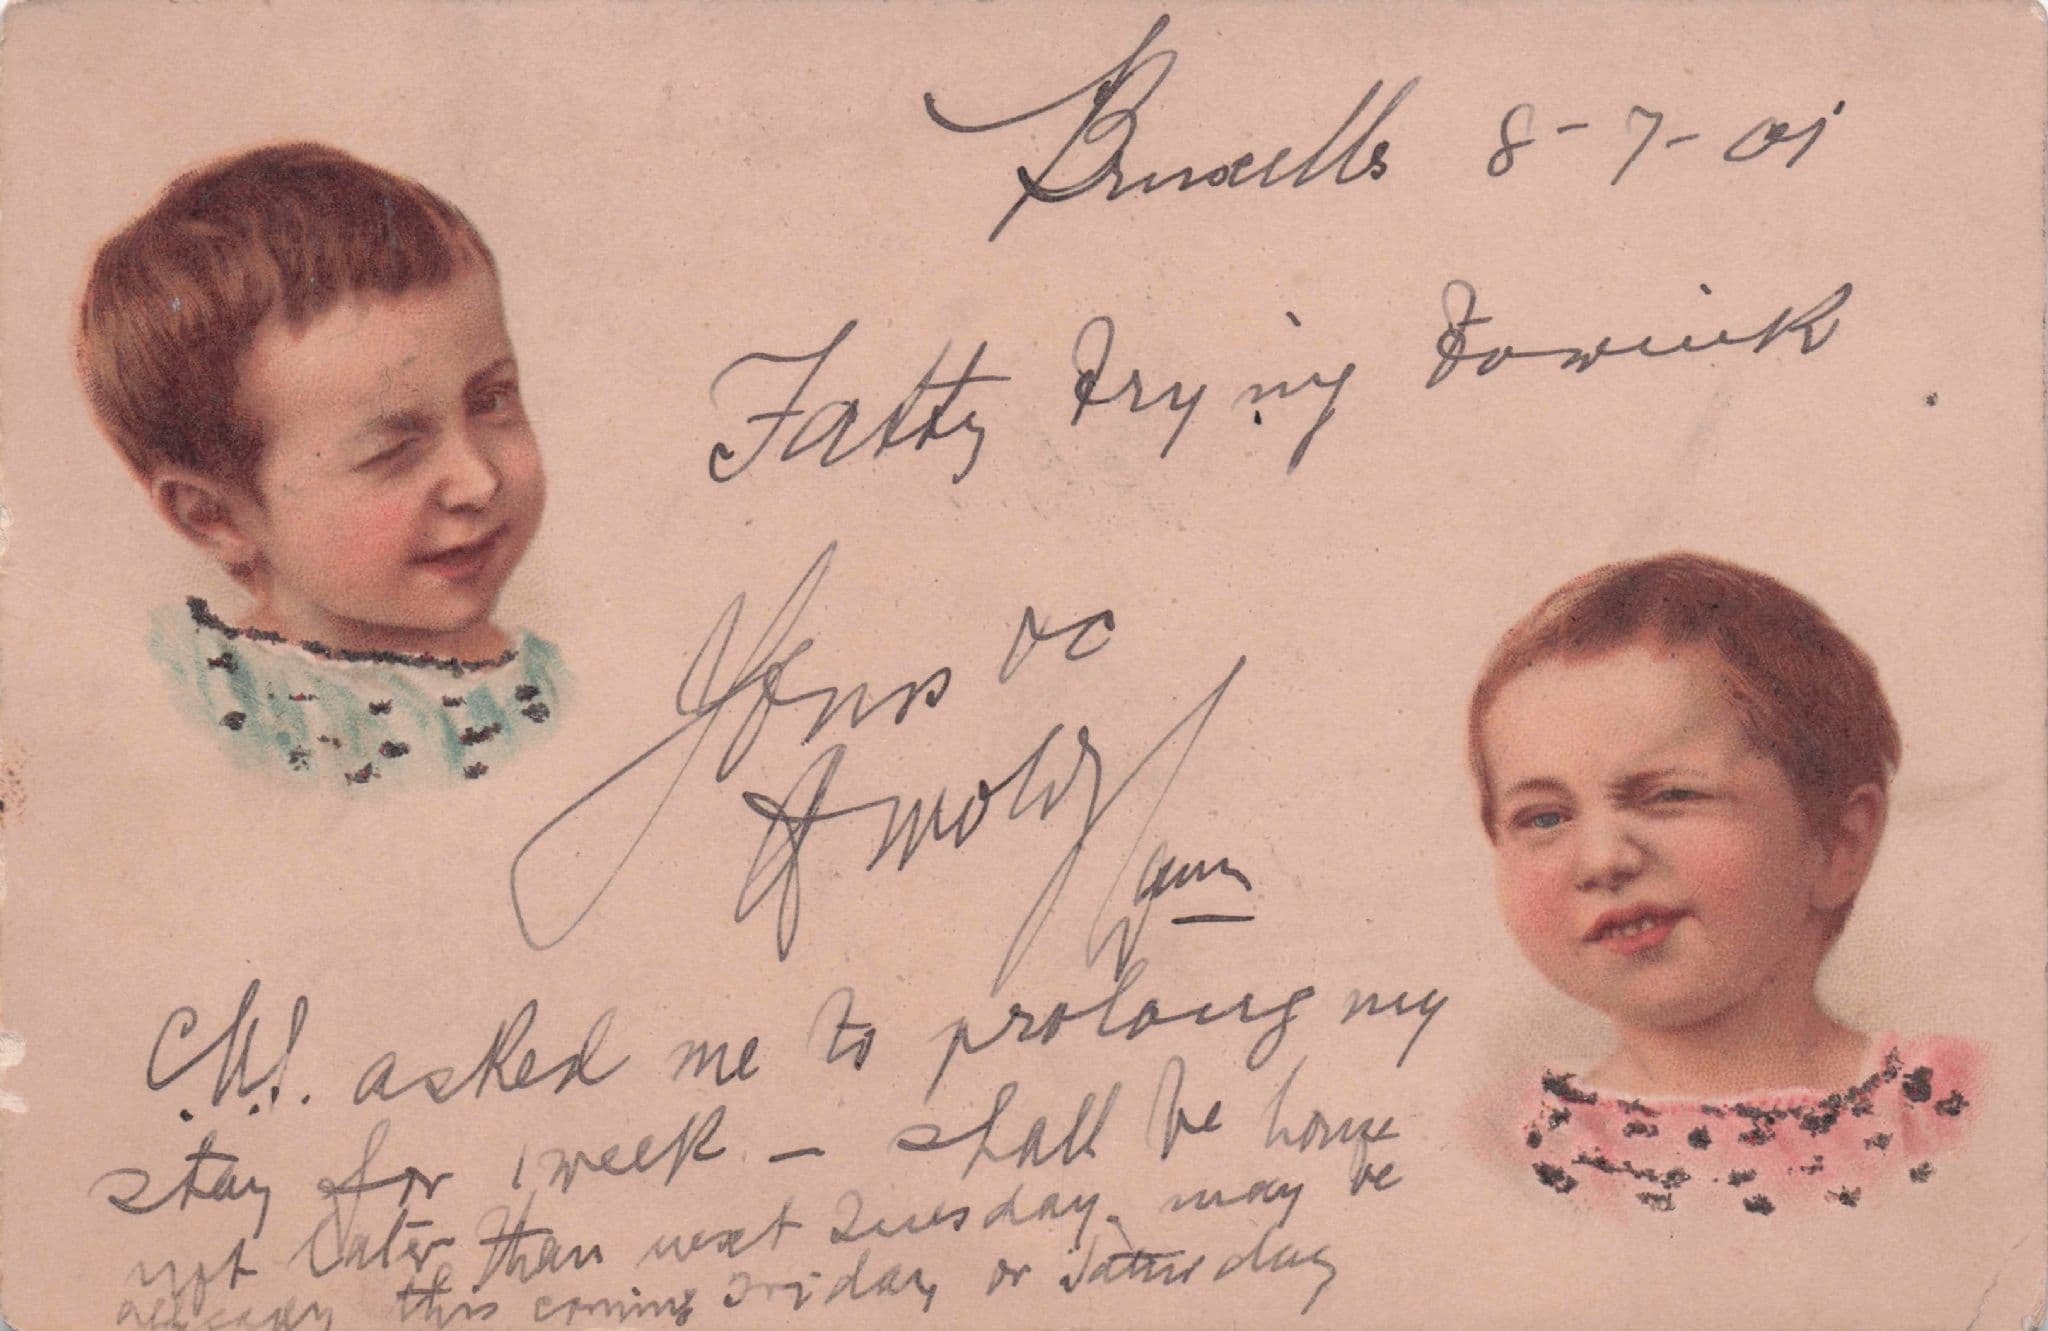 Bruxelles 8-7-01
Fatty trying to wink
Yours &c
Arnold
C.W. asked me to prolong my
stay for 1 week - shall be home
not later than next Tuesday, may be
already this coming Friday or Saturday